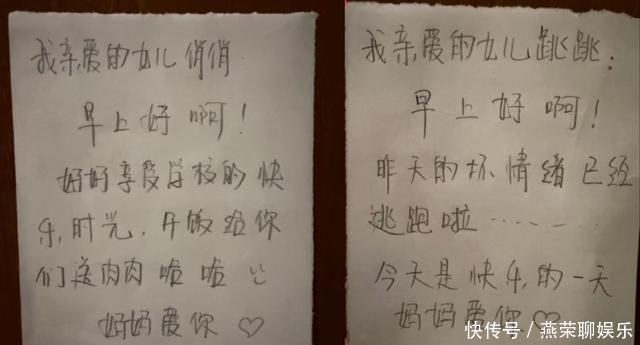 我亲爱的女儿俏俏
早上好啊!
好好享受学校的快
乐,时光,午饭给你
们送肉肉哈哈
妈妈爱你♡
我亲爱的女儿跳跳:
早上好啊!
昨天的坏情绪已经
逃跑啦……
今天是快乐,的一天
妈妈爱你♡
快传号/燕荣聊娱乐